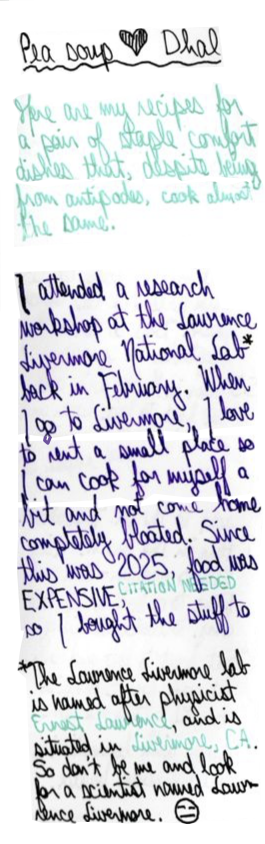 Pea soup ♥ Dhal
Here are my recipes for
a pair of staple comfort
dishes that, despite being
from antipodes, cook almost
the same.
I attended a research
workshop at the Lawrence
Livermore National Lab*
back in February. When
I go to Livermore, I love
to rent a small place so
I can cook for myself a
bit and not come home
completely bloated. Since
this was 2025, food was
EXPENSIVE, CITATION NEEDED
so I bought the stuff to
*The Lawrence Livermore lab
is named after physicist
Ernest Lawrence, and is
situated in Livermore, CA.
So don't be me and look
for a scientist named Lawr-
rence Livermore.